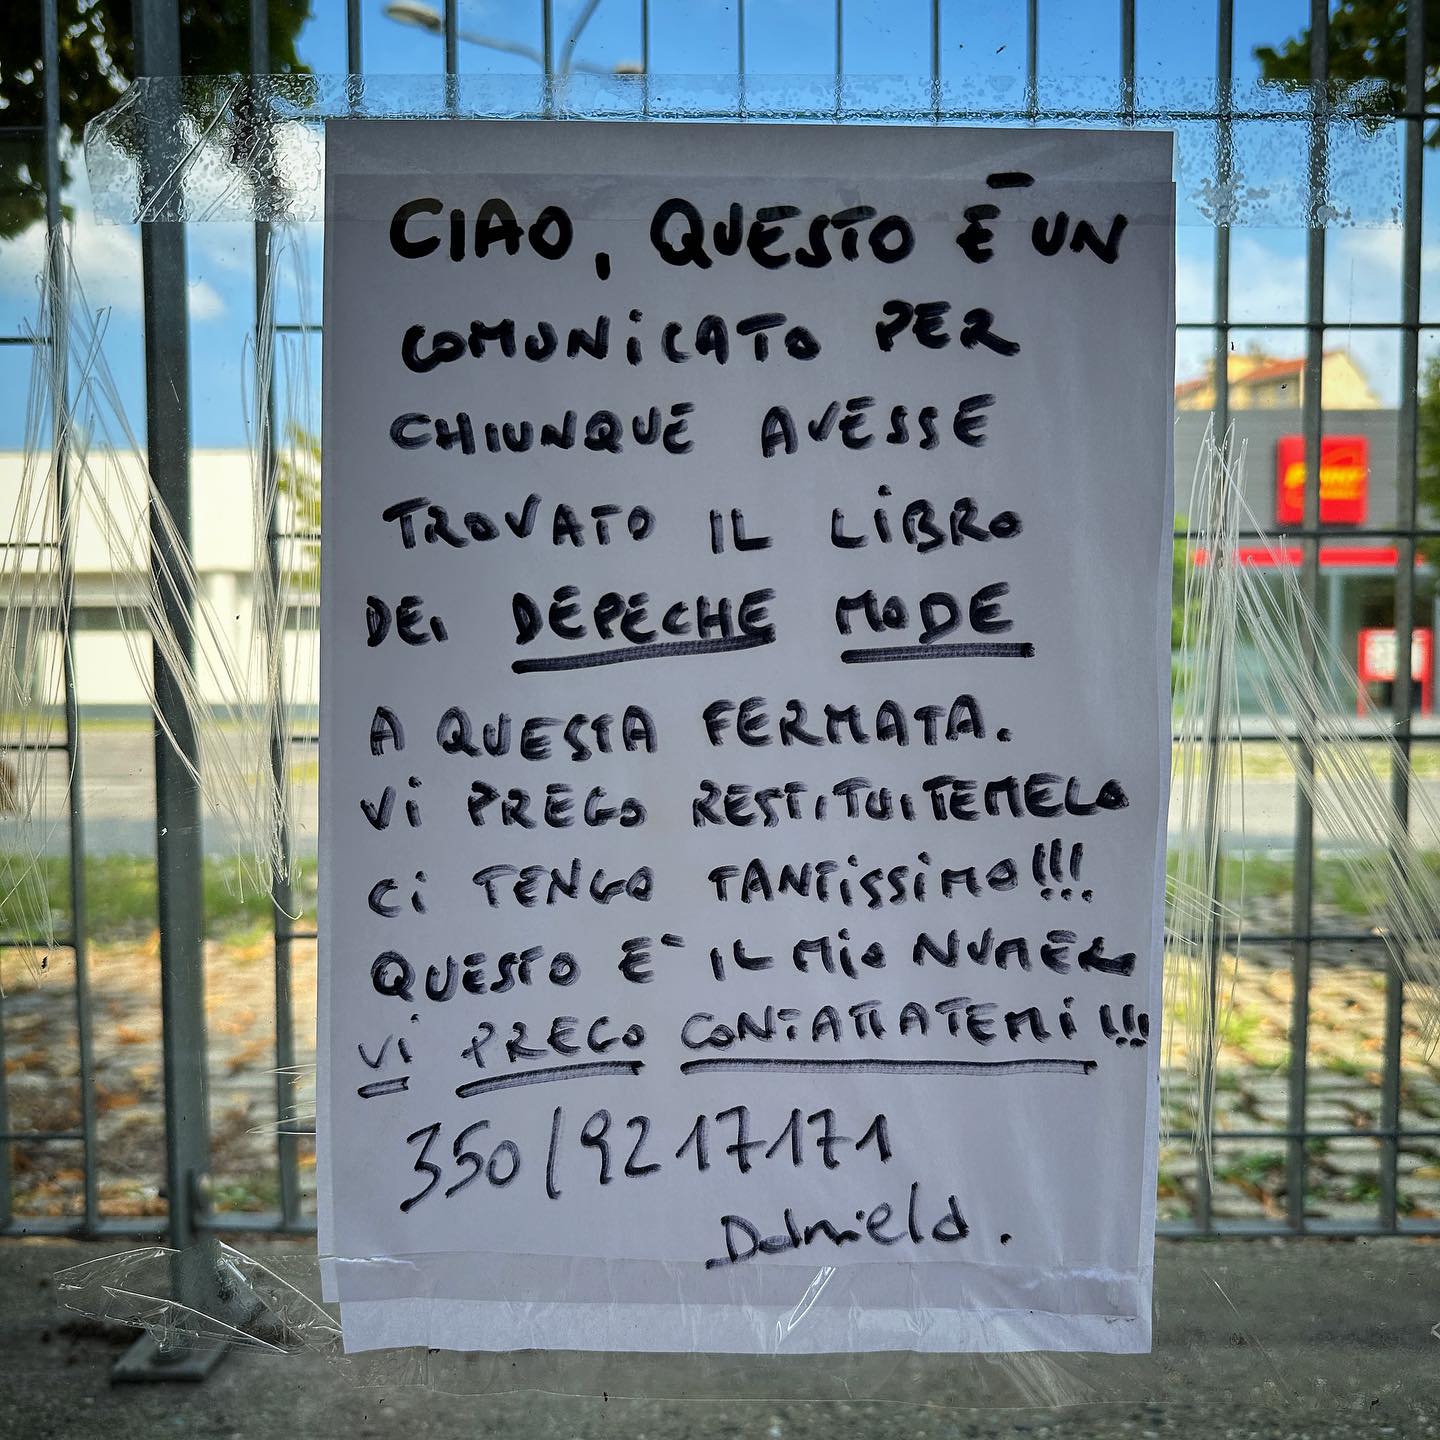 CIAO, QUESTO È UN
COMUNICATO PER
CHIUNQUE AVESSE
TROVATO IL LIBRO
DEI DEPECHE MODE
A QUESTA FERMATA.
VI PREGO RESTITUITEMELO
CI TENGO TANTISSIMO!!!
QUESTO E' IL MIO NUMERO
VI PREGO CONTATTATEMI!!!
350/9217171
Daniela.